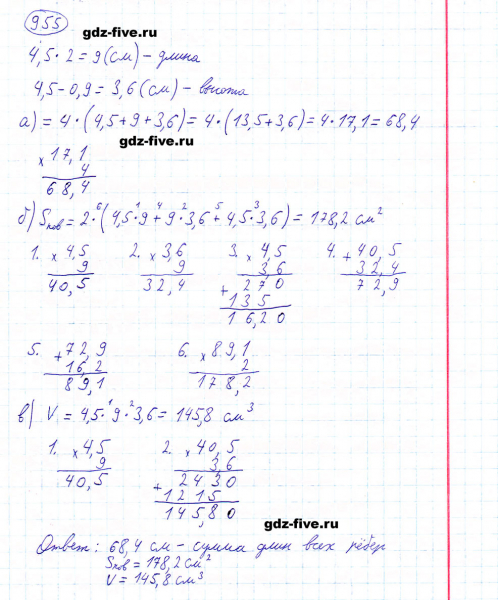 955
gdz-five.ru
4,5 · 2 = 9 (см) - длина
4,5 - 0,9 = 3,6 (см) - высота
а) = 4 · (4,5 + 9 + 3,6) = 4 · (13,5 + 3,6) = 4 · 17,1 = 68,4
gdz-five.ru
× 17,1
4
68,4
б) Sпов = 2 ·⁶ (4,5 ·¹ 9 +⁴ 9 ·² 3,6 +⁵ 4,5 ·³ 3,6) = 178,2 см²
1. × 4,5 2. × 3,6 3. × 4,5 4. + 40,5
9 9 3,6 32,4
40,5 32,4 270 72,9
+ 135
16,20
5. + 72,9 6. × 89,1
16,2 2
89,1 178,2
в) V = 4,5 ·¹ 9 ·² 3,6 = 145,8 см³
1. × 4,5 2. × 40,5
9 3,6
40,5 2430
+ 1215
145,80
gdz-five.ru
Ответ: 68,4 см - сумма длин всех рёбер
Sпов = 178,2 см²
V = 145,8 см³